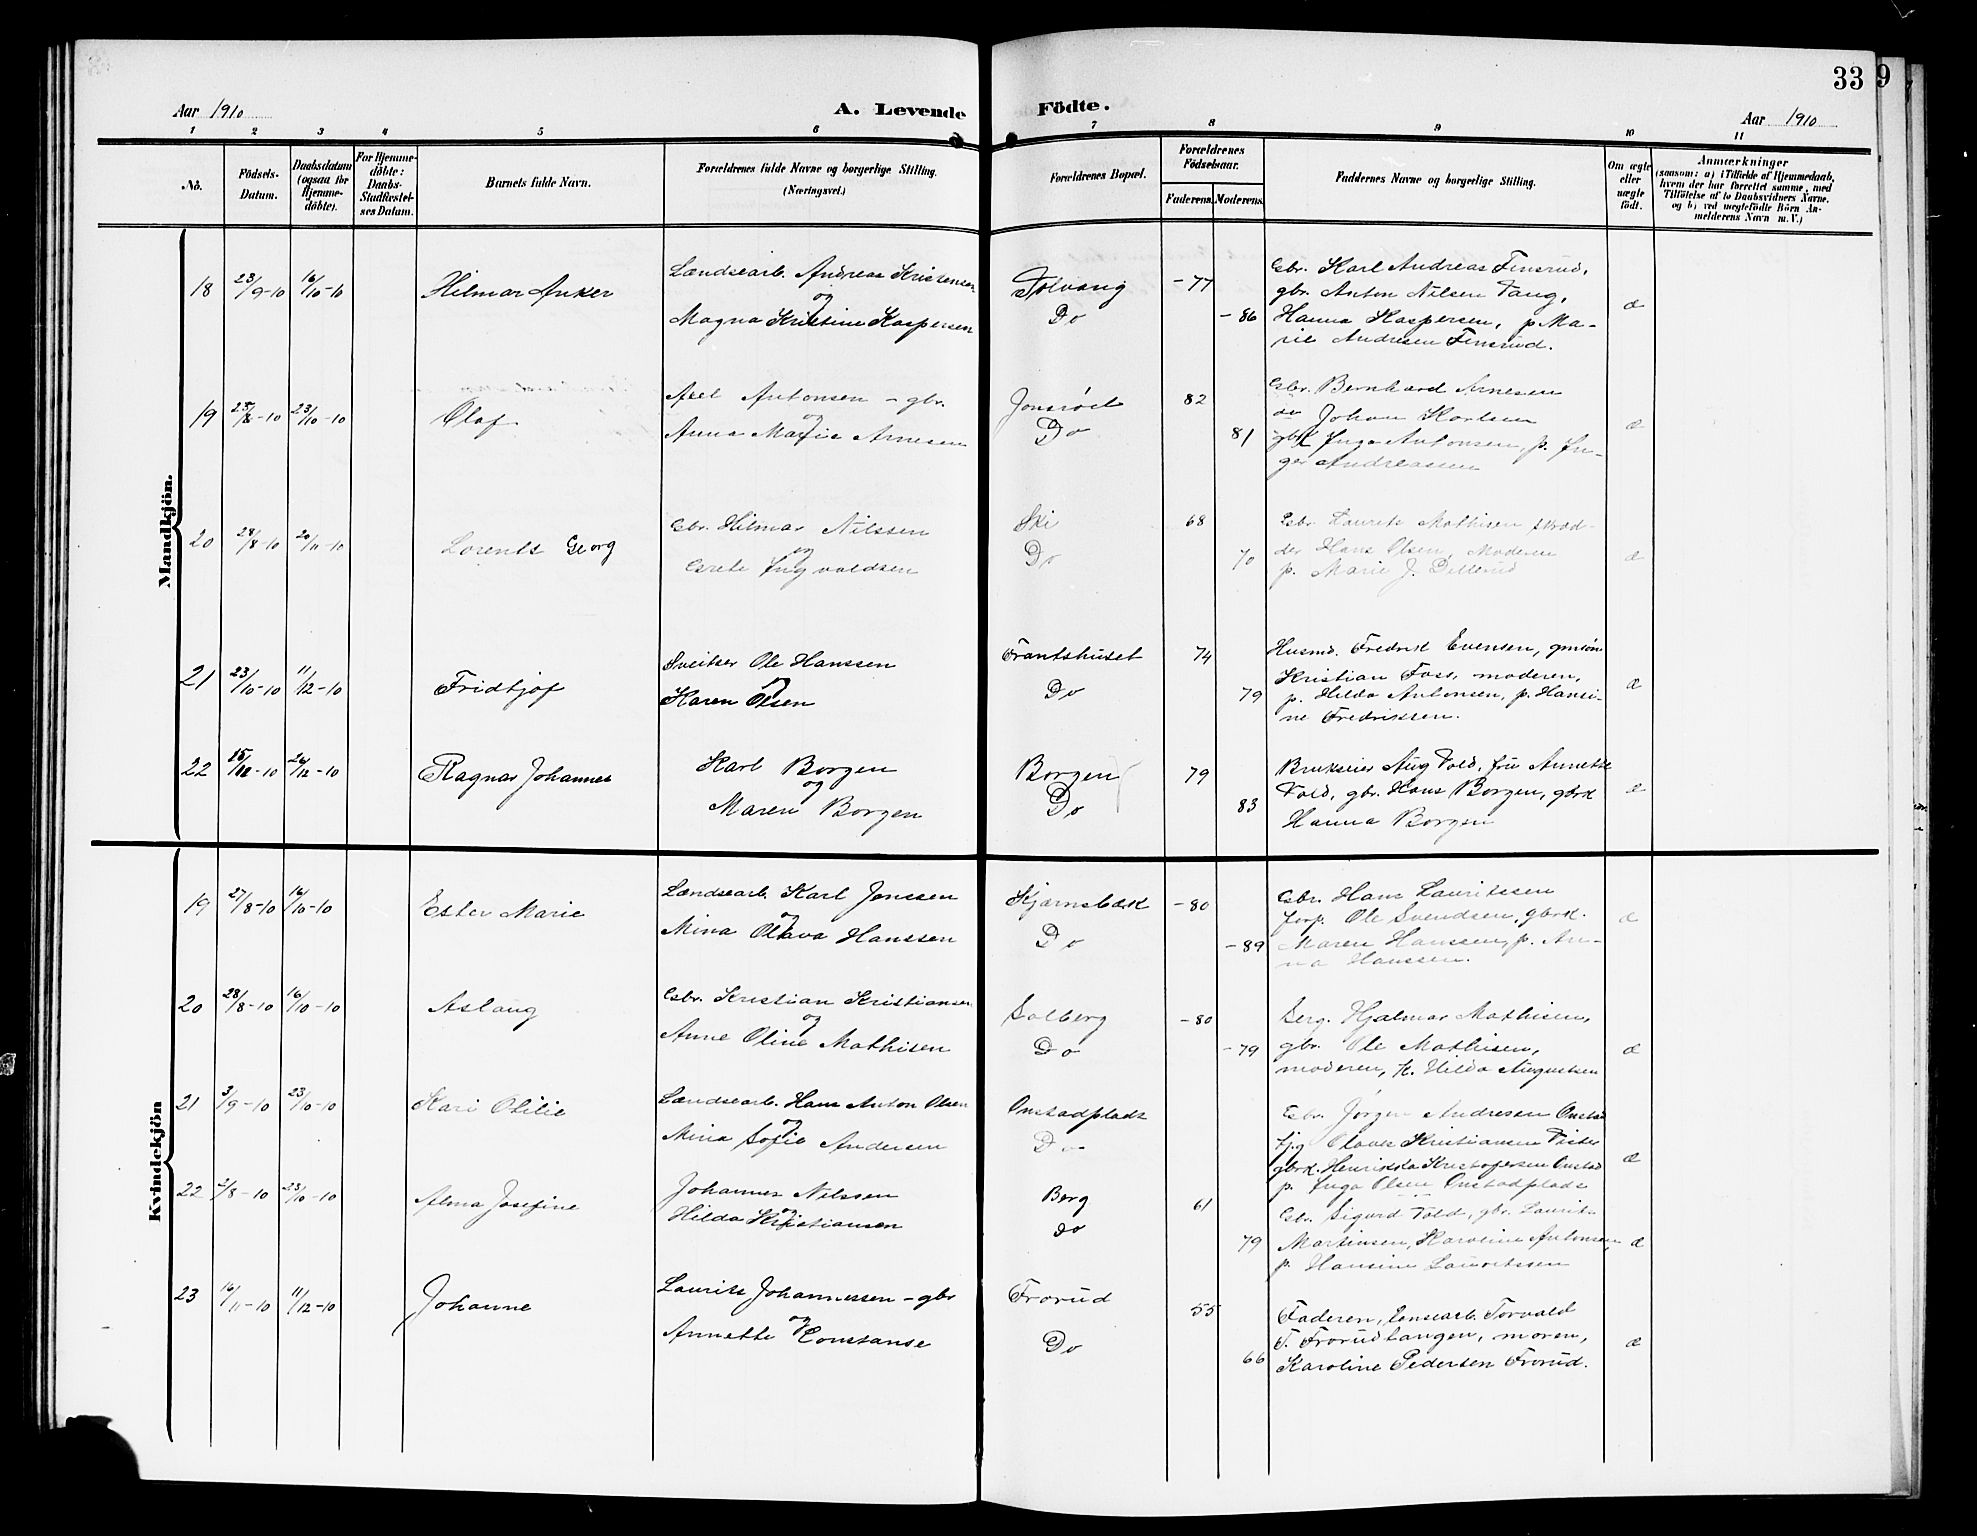 33
9
Aar 1910
A. Levende
Födte.
Aar 1910
1 2 3 4 5 6 7 8 9 10 11
No.
Födsels-
Datum.
Daabsdatum
(ogsaa for
Hjemme-
döbte).
For Hjemme-
döbte:
Daabs-
Stadfæstel-
ses Datum.
Barnets fulde Navn.
Forældrenes fulde Navne og borgerlige Stilling.
(Næringsvei.)
Forældrenes Bopæl.
Forældrenes
Födselsaar.
Faderens.
Moderens.
Faddernes Navne og borgerlige Stilling.
Om ægte
eller
uægte
födt.
Anmærkninger
(saasom: a) i Tilfælde af Hjemmedaab,
hvem der har forrettet samme, med
Tilföielse af to Daabsvidners Navne.
og b) ved uægtefödte Börn An-
melderens Navn m. V.)
Mandkjön.
18 23/9-10 16/10-10 Hilmar Anker
Lændsearb. Andreas Kristensen
og
Magna Kristine Kaspersen
Solvang -77
Do -86
Gbr. Karl Andreas Finsrud,
gbr. Anton Nilsen Vang,
Hanna Kaspersen, p. Ma-
rie Andresen Finsrud.
æ
19 25/8-10 23/10-10 Olaf
Axel Antonsen - gbr.
og
Anna Marie Arnesen
Jonsröd 82
Do 81
Gbr. Bernhard Arnesen
do Johan Karlsen
gbrk Inga Antonsen, p. In-
ger Andreassen
æ
20 28/8-10 20/11-10 Lorents Georg
Gbr. Hilmar Nilssen
og
Grete Ingvaldsen
Ski 68
Do 70
Gbr. Laurits Mathisen skræd-
der Hans Olsen, Moderen
p. Marie J. Dillerud
æ
21 23/10-10 11/12-10 Fridtjof
Sveitser Ole Hanssen
og
Karen Olsen
Frantshuset 74
Do 79
Husmd. Fredrik Evensen, gmsön
Kristian Foss, moderen,
p. Hilda Antonsen, p. Hansi-
ne Fredriksen.
æ
22 15/12-10 26/12-10 Ragnar Johannes
Karl Borgen
og
Maren Borgen
Borgen 79
Do 83
Brukseier Aug Vold, fru Annette
Vold, gbr. Hans Borgen, gbrk
Hanna Borgen
æ
Kvindekjön
19 27/8-10 16/10-10 Ester Marie
Lændsearb. Karl Jonssen
og
Mina Olava Hanssen
Kjærnsbæk -80
Do -89
Gbr. Hans Lauritssen
forp. Ole Svendsen, gbrk.
Maren Hanssen, p. An-
na Hanssen.
æ
20 28/8-10 16/10-10 Aslaug
Gbr. Kristian Kristiansen
og
Anne Oline Mathisen
Solberg -80
Do -79
Serg. Hjalmar Mathisen,
gbr. Ole Mathisen,
moderen, k. Hilda Augustsen
æ
21 3/9-10 23/10-10 Kari Otilie
Lændsearb. Hans Anton Olsen
og
Mina Sofie Andersen
Onstadplads
Do
Gbr. Jörgen Andresen Onstad
Olaves Kristiansen Vister
gbrk. Henrikka Kristofersen Onstad
p. Inga Olsen Onstadplads
æ
22 2/8-10 23/10-10 Alma Josefine
Johannes Nilssen
og
Hilda Kristiansen
Berg 61
do 79
Gbr. Sigurd Vold, gbr. Laurits
Martinsen, Karoline Antonsen,
p. Hansine Lauritssen
æ
23 16/11-10 11/12-10 Johanne
Laurits Johannessen - gbr
og
Annette Constanse
Frorud 55
Do 66
Faderen, lensearb. Torvald
T. Frorudtangen, moren,
Karoline Pedersen Frorud.
æ